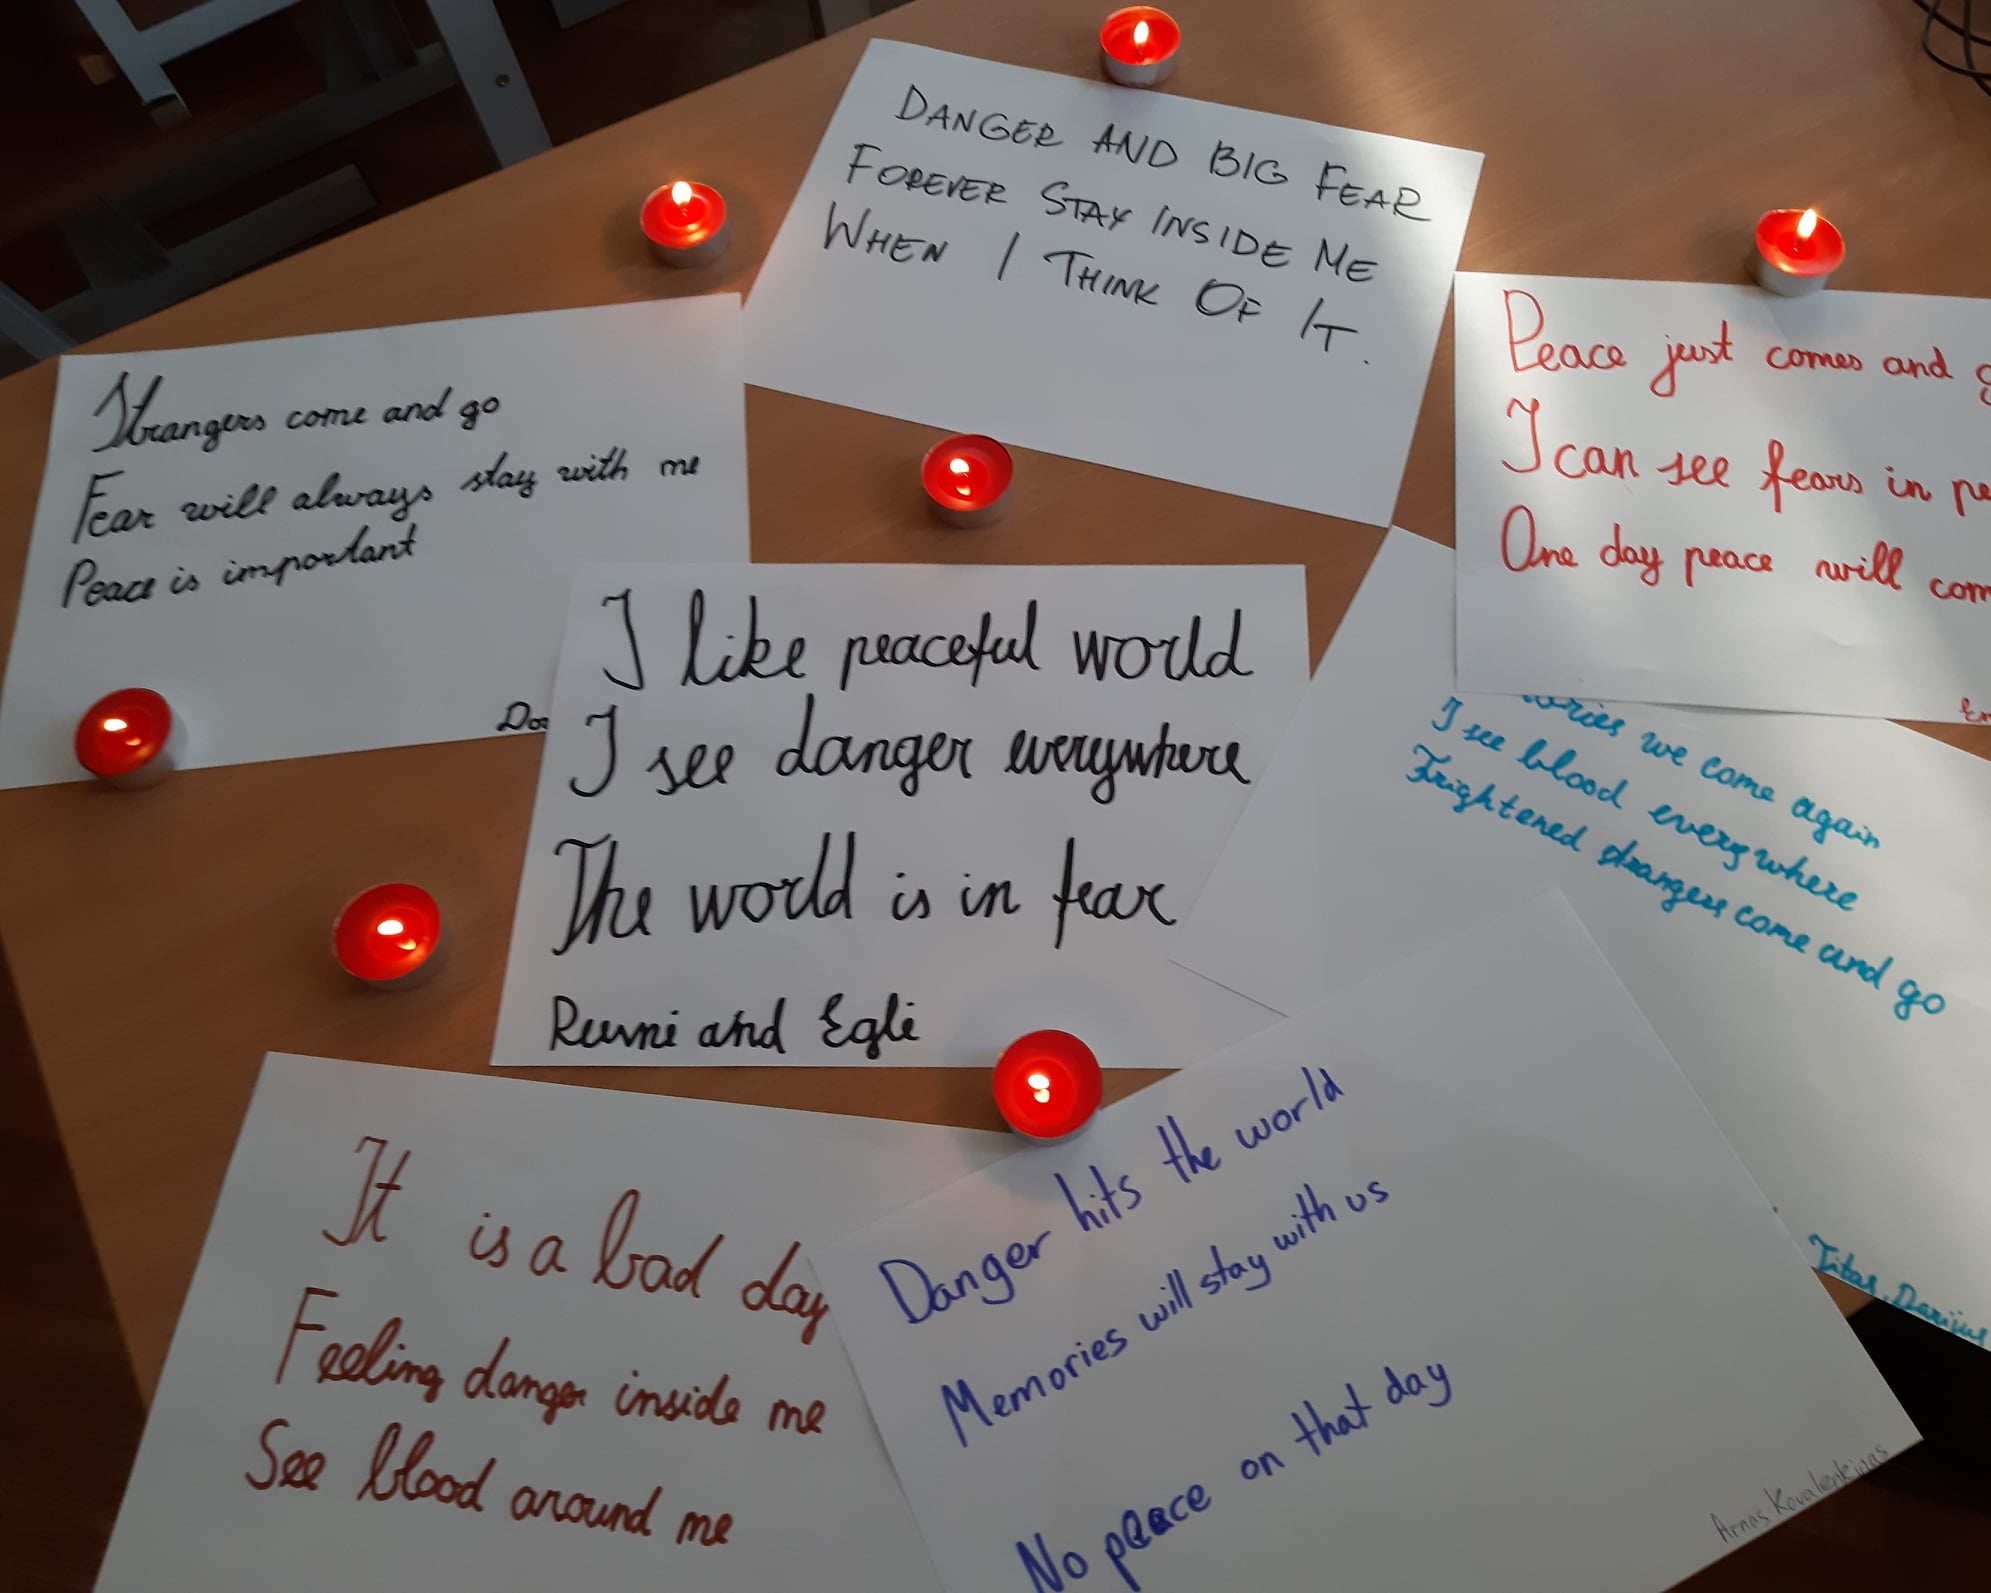 DANGER AND BIG FEAR
FOREVER STAY INSIDE ME
WHEN I THINK OF IT.
Strangers come and go
Fear will always stay with me
Peace is important
Peace just comes and
I can see fears in
One day peace will
I like peaceful world
I see danger everywhere
The world is in fear
and Egli
we come again
I see blood everywhere
Frightened strangers come and go
Titas, Darius
It is a bad day
Feeling danger inside me
See blood around me
Danger hits the world
Memories will stay with us
No peace on that day
Arnas Kovalenkinas